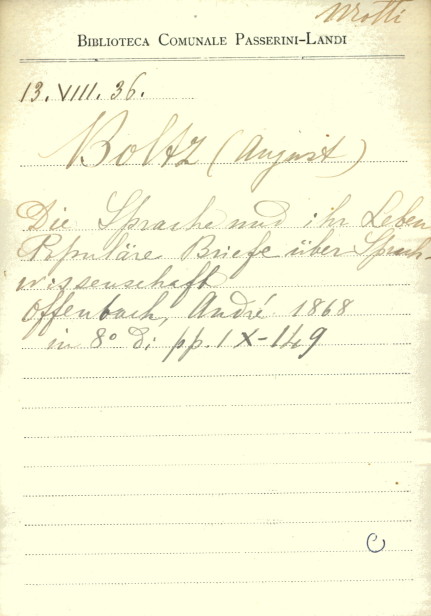 Motti
BIBLIOTECA COMUNALE PASSERINI-LANDI
13. VIII. 36.
Boltz (August)
Die Sprache und ihr Leben
Populäre Briefe über Sprach-
wissenschaft
Offenbach, André 1868
in 8° di pp. IX-149
C